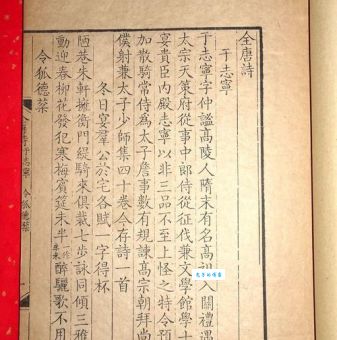 全唐詩
于志寧
于志寧字仲謐高陵人隋末有名高
入關禮遇
太宗天策府從事中郎侍從征伐兼文學館學士
宴貴臣內殿志寧以非三品不至上怪之特令預
加散騎常侍為太子詹事數有規諫高宗朝拜尚
僕射兼太子少師集四十卷今存詩一首
冬日宴羣公於宅各賦一字得杯
陋巷朱軒擁衡門緹騎來俱裁七步詠同傾三雅
動迎春柳花發犯寒梅賓筵未半一作未醉驪歌不用
令狐德棻